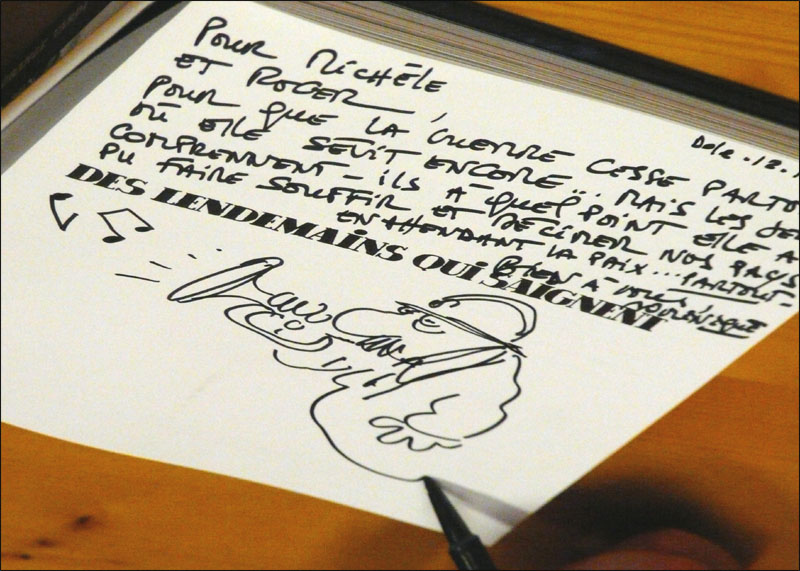 POUR MICHÈLE
ET ROGER,
POUR QUE LA GUERRE CESSE
OÙ ELLE SÉVIT ENCORE... MAIS LES
COMPRENNENT-ILS À QUEL POINT ELLE A
PU FAIRE SOUFFIR ET DÉCIMER NOS PAYS
EN ATTENDANT LA PAIX... PARTOUT-
BIEN À VOUS
DES LENDEMAINS QUI SAIGNENT
DOMINIQUE